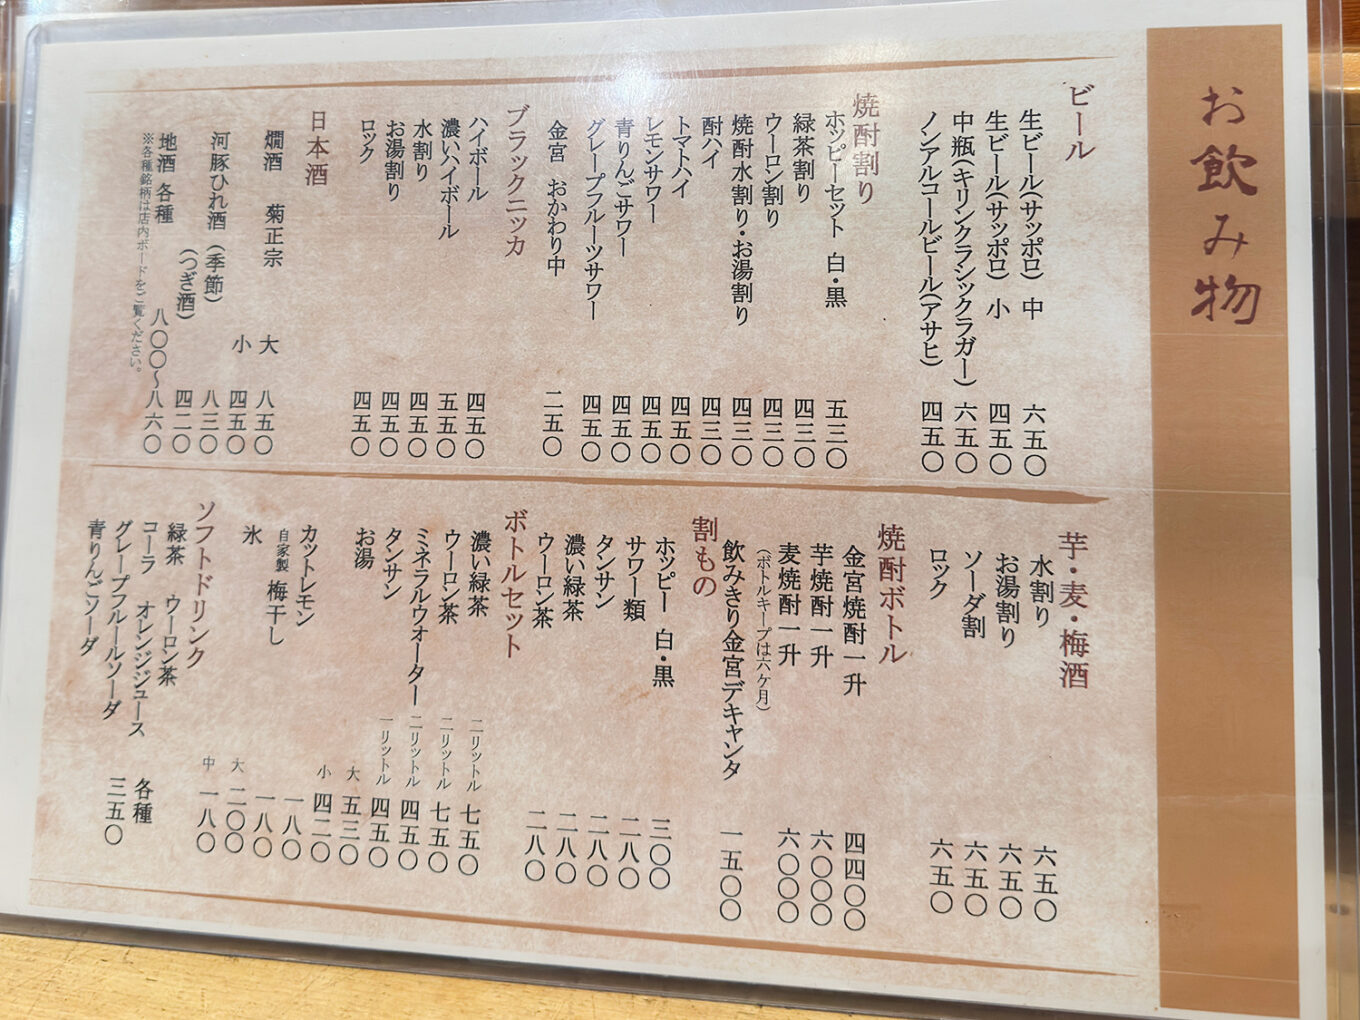 お飲み物
ビール
生ビール(サッポロ) 中 六五〇
生ビール(サッポロ) 小 四五〇
中瓶(キリンクラシックラガー) 六五〇
ノンアルコールビール(アサヒ) 四五〇
焼酎割り
ホッピーセット 白・黒 五三〇
緑茶割り 四三〇
ウーロン割り 四三〇
焼酎水割り・お湯割り 四三〇
酎ハイ 四三〇
トマトハイ 四五〇
レモンサワー 四五〇
青りんごサワー 四五〇
グレープフルーツサワー 四五〇
金宮 おかわり中 二五〇
ブラックニッカ
ハイボール 四五〇
濃いハイボール 五五〇
水割り 四五〇
お湯割り 四五〇
ロック 四五〇
日本酒
燗酒 菊正宗 大 八五〇
小 四五〇
河豚ひれ酒(季節) 八三〇
(つぎ酒) 四二〇
地酒 各種 八〇〇～八六〇
※各種銘柄は店内ボードをご覧ください。
芋・麦・梅酒
水割り 六五〇
お湯割り 六五〇
ソーダ割 六五〇
ロック 六五〇
焼酎ボトル
金宮焼酎一升 四四〇〇
芋焼酎一升 六〇〇〇
麦焼酎一升 六〇〇〇
(ボトルキープは六ケ月)
飲みきり金宮デキャンタ 一五〇〇
割もの
ホッピー 白・黒 三〇〇
サワー類 二八〇
タンサン 二八〇
濃い緑茶 二八〇
ウーロン茶 二八〇
ボトルセット
濃い緑茶 二リットル 七五〇
ウーロン茶 二リットル 七五〇
ミネラルウォーター 二リットル 四五〇
タンサン 一リットル 四五〇
お湯 大 五三〇
小 四二〇
カットレモン 一八〇
自家製 梅干し 一八〇
氷 大 二〇〇
中 一八〇
ソフトドリンク
緑茶 ウーロン茶
コーラ オレンジジュース 各種
グレープフルールソーダ 三五〇
青りんごソーダ